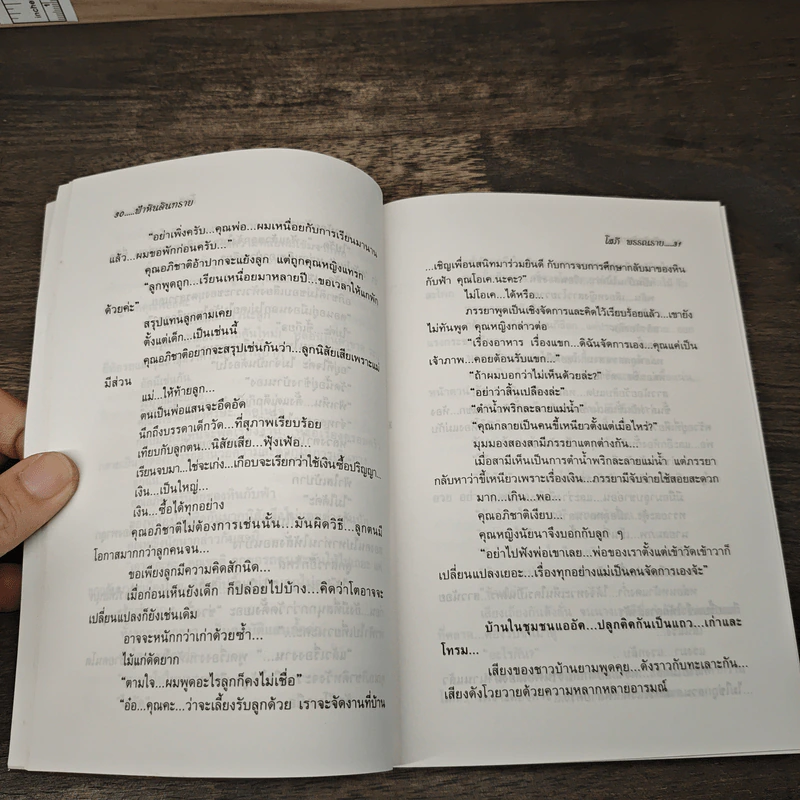 inche
๓๐.....ฟ้าหินดินทราย
"อย่าเพิ่งครับ...คุณพ่อ...ผมเหนื่อยกับการเรียนมานาน
แล้ว...ผมขอพักก่อนครับ..."
คุณอภิชาติอ้าปากจะแย้งลูก แต่ถูกคุณหญิงแทรก
"ลูกพูดถูก...เรียนเหนื่อยมาหลายปี...ขอเวลาให้แกพัก
ด้วยค่ะ"
สรุปแทนลูกตามเคย
ตั้งแต่เด็ก...เป็นเช่นนี้
คุณอภิชาติอยากจะสรุปเช่นกันว่า...ลูกนิสัยเสียเพราะแม่
มีส่วน
แม่...ให้ท้ายลูก...
ตนเป็นพ่อแสนจะอึดอัด
นึกถึงบรรดาเด็กวัด...ที่สุภาพเรียบร้อย
เทียบกับลูกตน...นิสัยเสีย...ฟุ้งเฟ้อ...
เรียนจบมา...ใช่จะเก่ง...เกือบจะเรียกว่าใช้เงินซื้อปริญญา...
เงิน...เป็นใหญ่...
เงิน...ซื้อได้ทุกอย่าง
คุณอภิชาติไม่ต้องการเช่นนั้น...มันผิดวิธี...ลูกตนมี
โอกาสมากกว่าลูกคนจน...
ขอเพียงลูกมีความคิดสักนิด...
เมื่อก่อนเห็นยังเด็ก ก็ปล่อยไปบ้าง...คิดว่าโตอาจจะ
เปลี่ยนแปลงก็ยังเช่นเดิม
อาจจะหนักกว่าเก่าด้วยซ้ำ...
ไม้แก่ดัดยาก
"ตามใจ...ผมพูดอะไรลูกก็คงไม่เชื่อ"
"อ๋อ...คุณคะ...ว่าจะเลี้ยงรับลูกด้วย เราจะจัดงานที่บ้าน
โสภี พรรณราย.....๓๑
...เชิญเพื่อนสนิทมาร่วมยินดี กับการจบการศึกษากลับมาของหิน
กับฟ้า คุณโอเค.นะคะ?"
ไม่โอเค...ได้หรือ...
ภรรยาพูดเป็นเชิงจัดการและคิดไว้เรียบร้อยแล้ว...เขายัง
ไม่ทันพูด คุณหญิงกล่าวต่อ
"เรื่องอาหาร เรื่องแขก...ดิฉันจัดการเอง...คุณแค่เป็น
เจ้าภาพ...คอยต้อนรับแขก..."
"ถ้าผมบอกว่าไม่เห็นด้วยล่ะ?"
"อย่าว่าสิ้นเปลืองล่ะ"
"ตำน้ำพริกละลายแม่น้ำ"
"คุณกลายเป็นคนขี้เหนียวตั้งแต่เมื่อไหร่?"
มุมมองสองสามีภรรยาแตกต่างกัน...
เมื่อสามีเห็นเป็นการตำน้ำพริกละลายแม่น้ำ แต่ภรรยา
กลับหาว่าขี้เหนียวเพราะเรื่องเงิน...ภรรยามีจับจ่ายใช้สอยสะดวก
มาก...เกิน...พอ...
คุณอภิชาติเงียบ...
คุณหญิงนัยนาจึงบอกกับลูก ๆ
"อย่าไปฟังพ่อเขาเลย...พ่อของเราตั้งแต่เข้าวัดเข้าวาก็
เปลี่ยนแปลงเยอะ...เรื่องทุกอย่างแม่เป็นคนจัดการเองจ้ะ"
บ้านในชุมชนแออัด...ปลูกติดกันเป็นแถว...เก่าและ
โทรม...
เสียงของชาวบ้านยามพูดคุย...ดังราวกับทะเลาะกัน...
เสียงดังโวยวายด้วยความหลากหลายอารมณ์